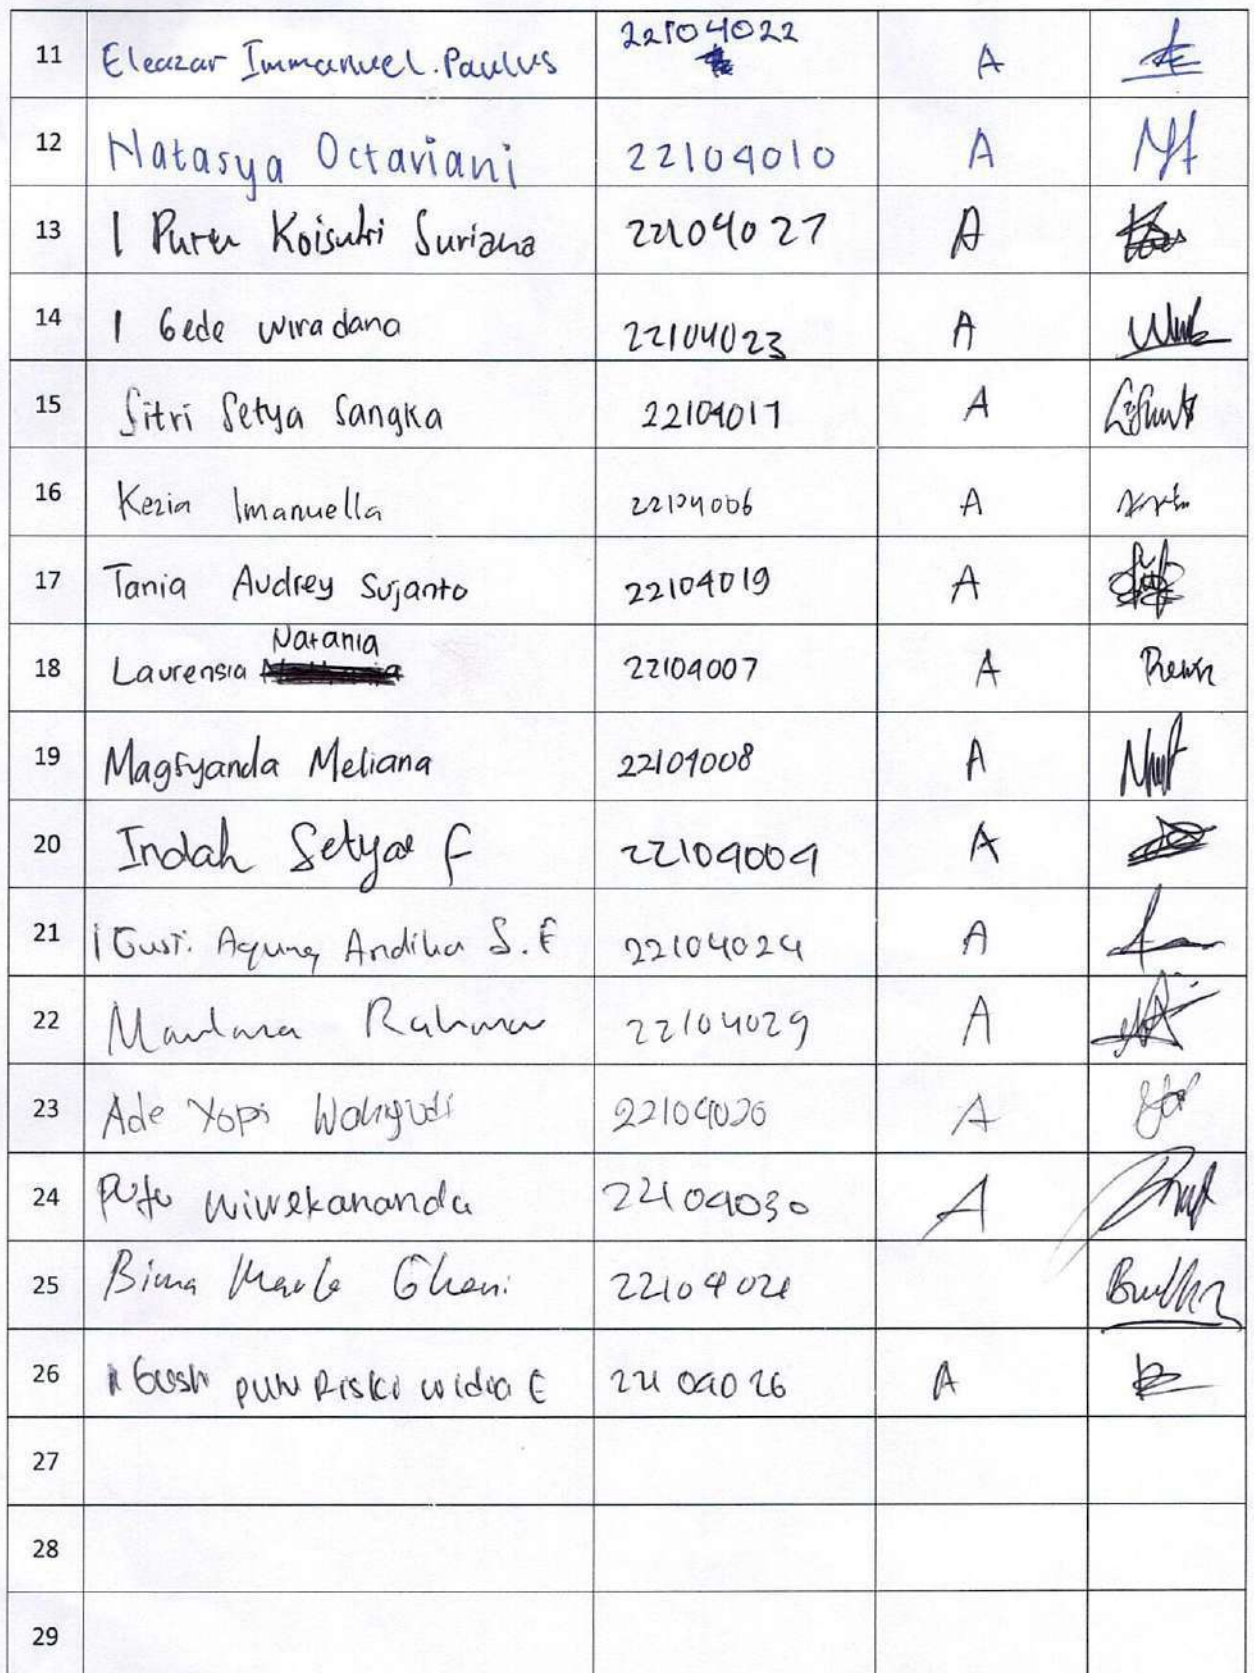 11 Eleazar Immanuel.Paulus 22104022 A
12 Natasya Octaviani 22104010 A
13 I Putu Koisuki Suriana 22104027 A
14 I Gede wiradana 22104023 A
15 Sitri Setya Sangka 22104017 A
16 Kezia Imanuella 22104006 A
17 Tania Audrey Sujanto 22104019 A
Natania
18 Laurensia 22104007 A
19 Magfyanda Meliana 22104008 A
20 Indah Setya F 22104009 A
21 I Gusti Agung Andika S. E 22104024 A
22 Maulana Rahman 22104029 A
23 Ade Yopi Wahyudi A
24 Putu wiwekananda 22104030 A
25 Bima Ghani
26 I Gusti putu Riski widia E 22104026 A
27
28
29